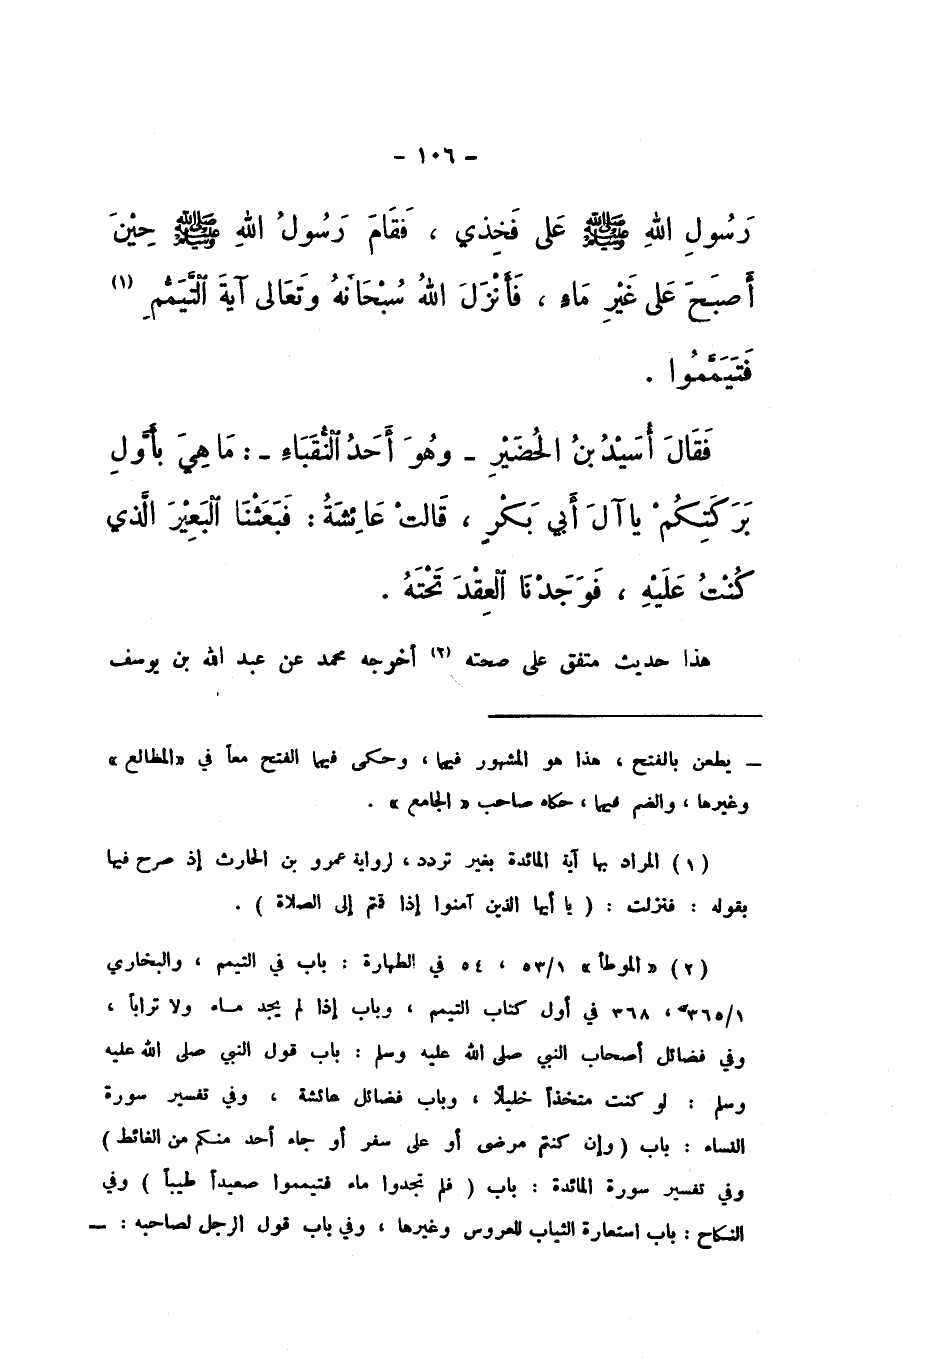 - ١٠٦ -
رَسُولِ اللهِ ﷺ عَلى فَخِذي ، فَقَامَ رَسُولُ اللهِ ﷺ حِيْنَ
أَصبَحَ عَلى غَيْرِ مَاءٍ ، فَأَنْزَلَ اللهُ سُبْحَانَهُ وتَعَالى آيةَ ٱلتَّيَمُّمِ (١)
فَتَيَمَّمُوا .
فَقَالَ أُسَيْدُ بنُ الحُضَيْرِ - وهُوَ أَحَدُ ٱلنُّقَبَاءِ - : مَا هِيَ بأَوَّلِ
بَرَكَتِكُمْ يا آلَ أَبي بَكْرٍ ، قَالتْ عَائِشَةُ : فَبَعَثْنَا ٱلبَعِيْرَ الَّذي
كُنْتُ عَلَيْهِ ، فَوَجَدْنَا ٱلعِقْدَ تَحْتَهُ .
هذا حديث متفق على صحته (٢) أخرجه محمد عن عبد الله بن يوسف
ـ يطعن بالفتح ، هذا هو المشهور فيها ، وحكى فيها الفتح معاً في «المطالع»
وغيرها ، والضم فيها ، حكاه صاحب « الجامع » .
( ١ ) المراد بها آية المائدة بغير تردد ، لرواية عمرو بن الحارث إذ صرح فيها
بقوله : فنزلت : ( يا أيها الذين آمنوا إذا قمتم إلى الصلاة ) .
( ٢ ) « الموطأ » ٥٣/١ ، ٥٤ في الطهارة : باب في التيمم ، والبخاري
٣٦٥/١ ، ٣٦٨ في أول كتاب التيمم ، وباب إذا لم يجد مـاء ولا تراباً ،
وفي فضائل أصحاب النبي صلى الله عليه وسلم : باب قول النبي صلى الله عليه
وسلم : لو كنت متخذاً خليلاً ، وباب فضائل عائشة ، وفي تفسير سورة
النساء : باب ( وإن كنتم مرضى أو على سفر أو جاء أحد منكم من الغائط )
وفي تفسير سورة المائدة : باب ( فلم تجدوا ماء فتيمموا صعيداً طيباً ) وفي
النكاح : باب استعارة الثياب للعروس وغيرها ، وفي باب قول الرجل لصاحبه : ـ